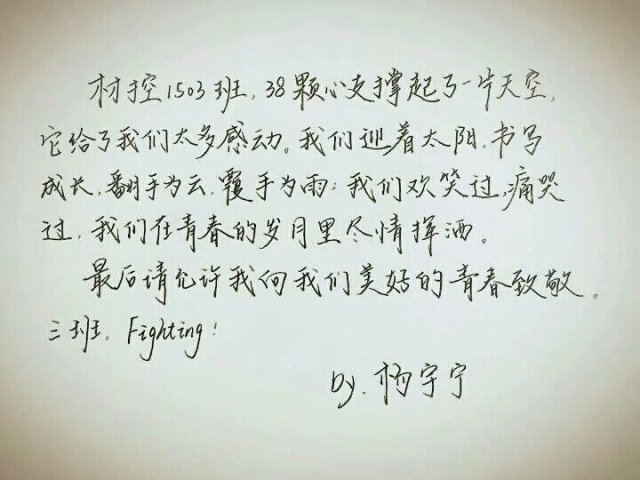 材控1503班，38颗心支撑起了一片天空，
它给了我们太多感动。我们迎着太阳，书写
成长，翻手为云，覆手为雨；我们欢笑过，痛哭
过，我们在青春的岁月里尽情挥洒。
最后请允许我向我们美好的青春致敬。
三班，Fighting！
by.杨宇宁